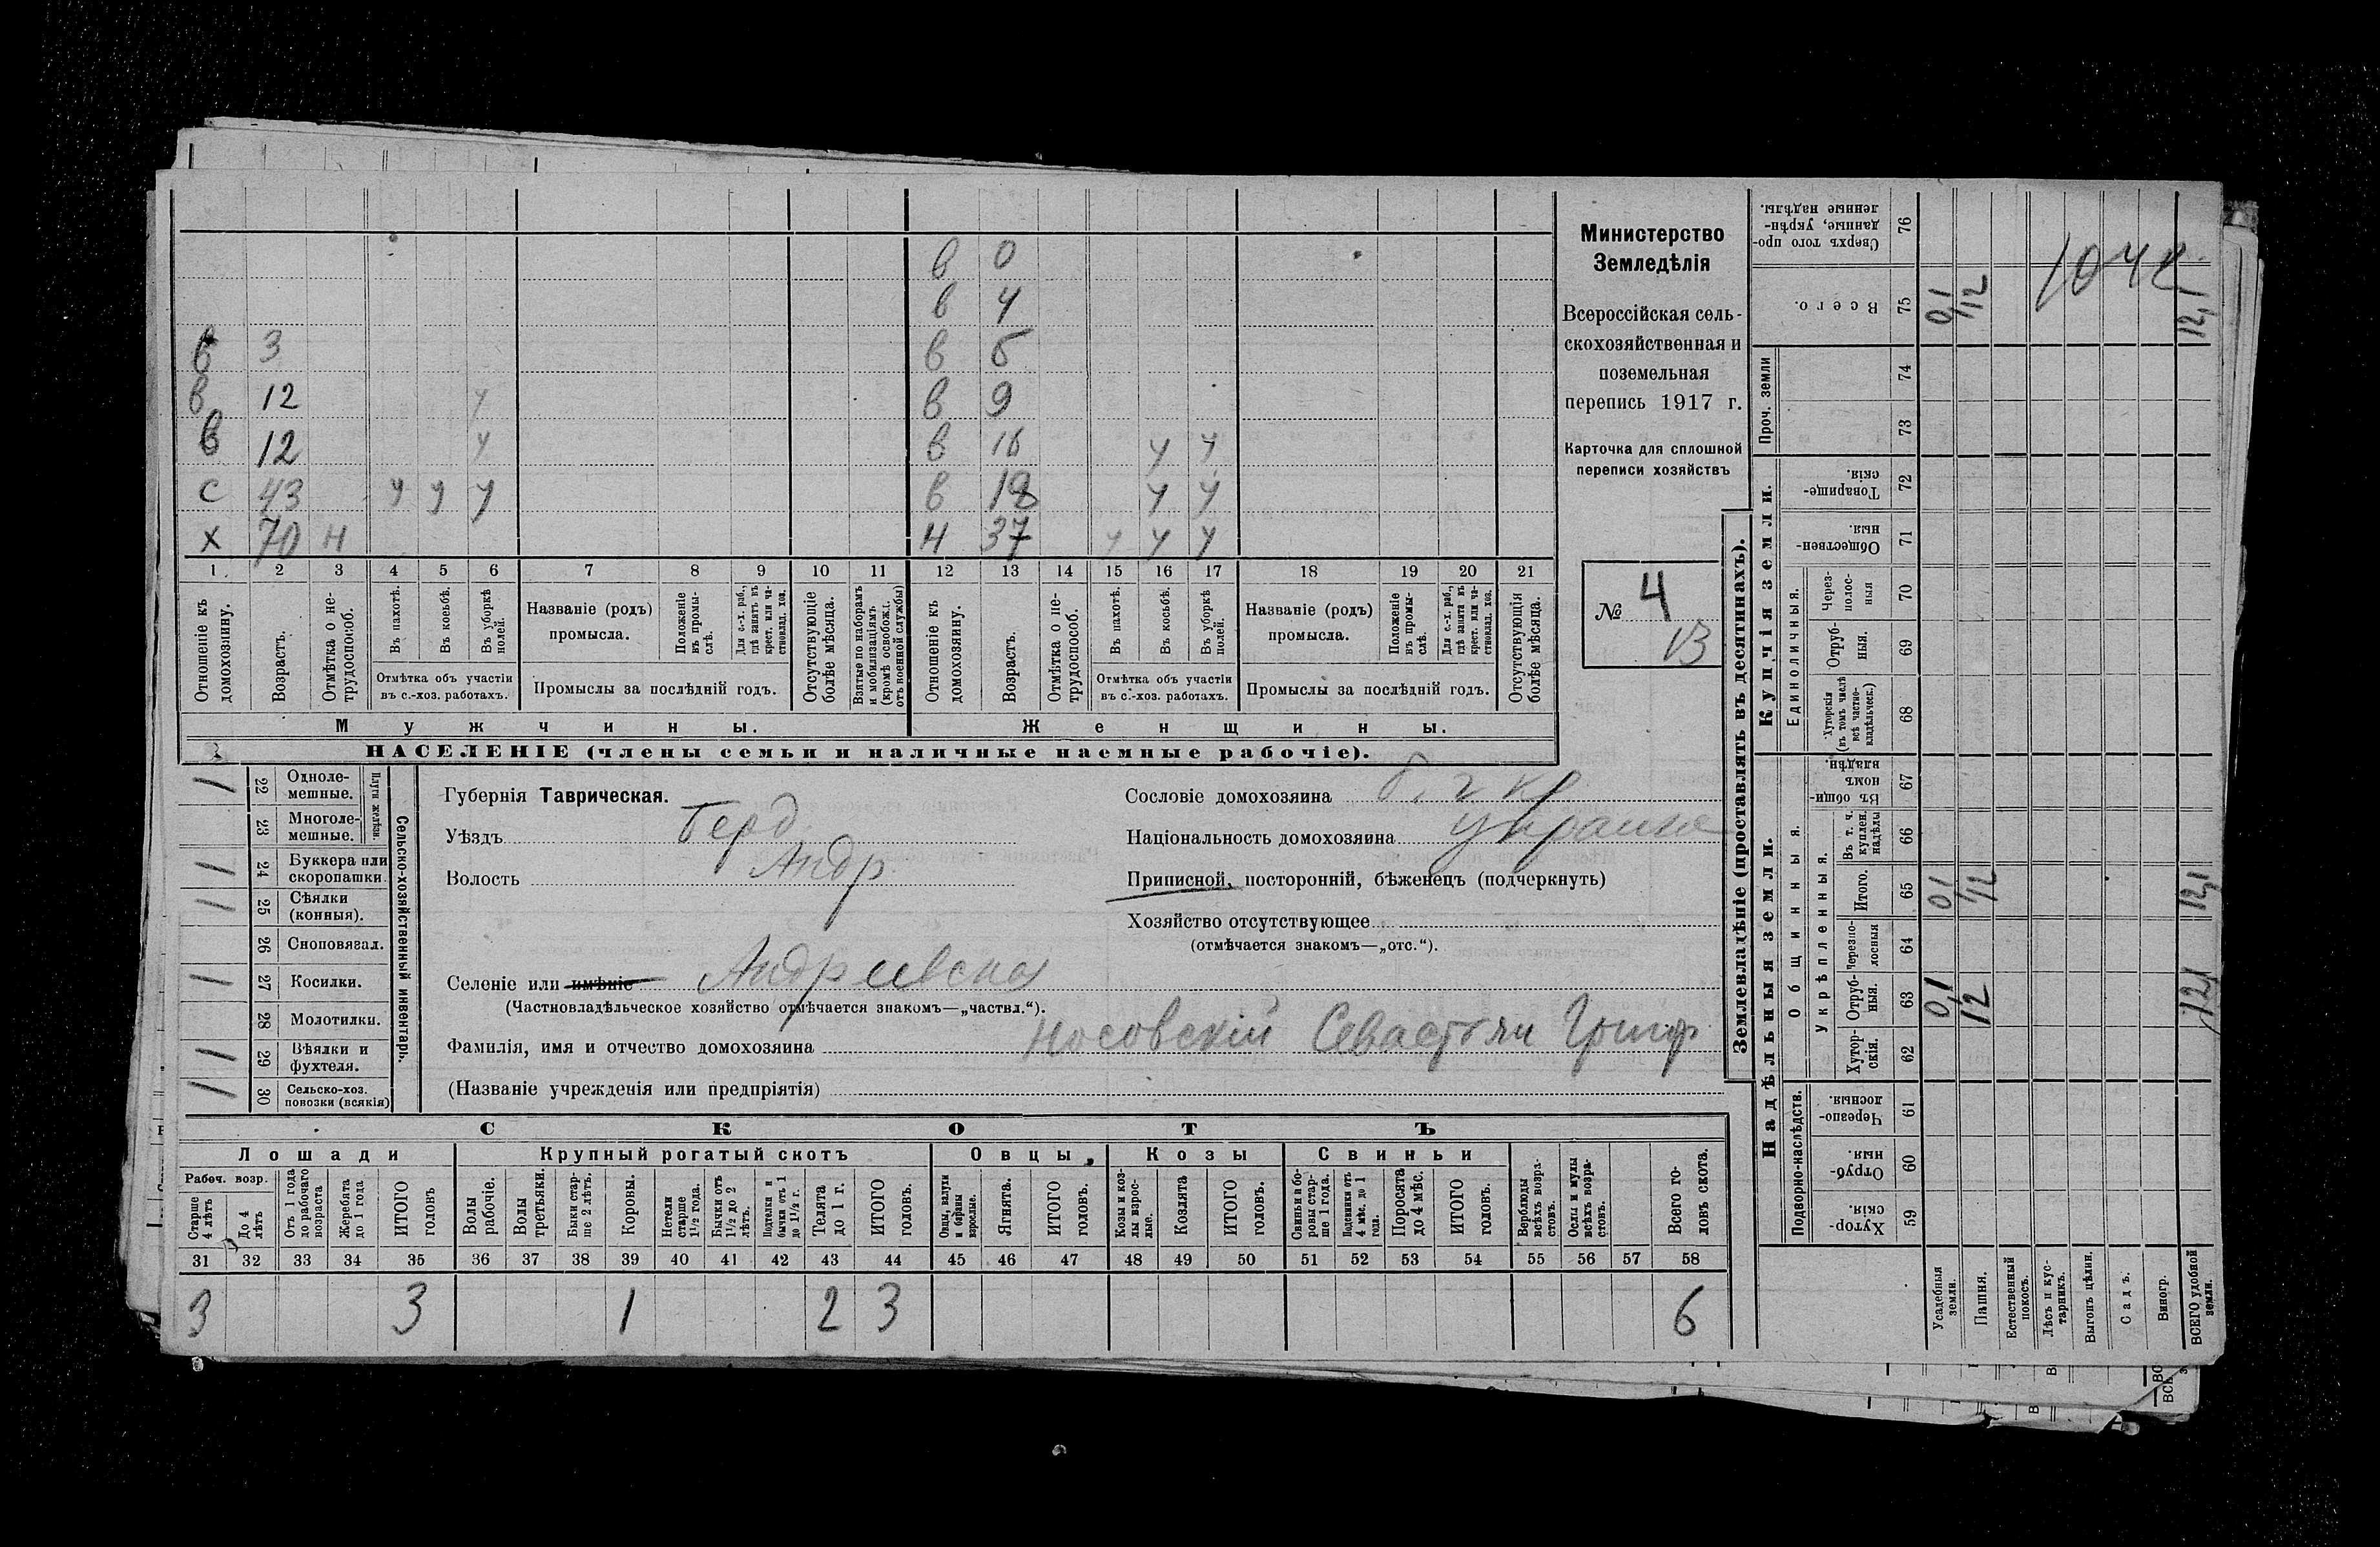 в 0
в 4
в 3 в 5
в 12 у в 9
в 12 у в 16 у у
с 43 у у у в 18 у у
х 70 н н 37 у у у
1 2 3 4 5 6 7 8 9 10 11 12 13 14 15 16 17 18 19 20 21
Отношеніе къ домохозяину.
Возрастъ.
Отмѣтка о не-
трудоспособ.
Въ пахотѣ.
Въ косьбѣ.
Въ уборкѣ полей.
Отмѣтка объ участіи
въ с.-хоз. работахъ.
Названіе (родъ)
промысла.
Положеніе въ промы-
слѣ.
Для с.-х. раб., гдѣ занятъ въ крест. или ча-
стновлад. хоз.
Промыслы за послѣдній годъ.
Отсутствующіе болѣе мѣсяца.
Взятые по наборамъ и мобилизаціямъ (кромѣ освобожд. отъ военной службы)
Отношеніе къ домохозяину.
Возрастъ.
Отмѣтка о не-
трудоспособ.
Въ пахотѣ.
Въ косьбѣ.
Въ уборкѣ полей.
Отмѣтка объ участіи
въ с.-хоз. работахъ.
Названіе (родъ)
промысла.
Положеніе въ промы-
слѣ.
Для с.-х. раб., гдѣ занята въ крест. или ча-
стновлад. хоз.
Промыслы за послѣдній годъ.
Отсутствующія болѣе мѣсяца.
Мужчины.
Женщины.
НАСЕЛЕНІЕ (члены семьи и наличные наемные рабочіе).
Министерство
Земледѣлія
Всероссійская сель-
скохозяйственная и
поземельная
перепись 1917 г.
Карточка для сплошной
переписи хозяйствъ
№ 4
13
1 22 Одноле-
мешные.
23 Многоле-
мешные.
Плуги желѣзн.
1 24 Буккера или
скоропашки.
1 25 Сѣялки
(конныя).
26 Сноповязал.
1 27 Косилки.
28 Молотилки.
11 29 Вѣялки и
фухтеля.
11 30 Сельско-хоз.
повозки (всякія)
Сельско-хозяйственный инвентарь.
Губернія Таврическая.
Уѣздъ Берд
Волость Андр
Селеніе или имѣніе Андреевска
(Частновладѣльческое хозяйство отмѣчается знакомъ—„частвл.“).
Фамилія, имя и отчество домохозяина Носовскій Севастьян Григ
(Названіе учрежденія или предпріятія)
Сословіе домохозяина б. г кр
Національность домохозяина украин
Приписной, посторонній, бѣженецъ (подчеркнуть)
Хозяйство отсутствующее
(отмѣчается знакомъ—„отс.“).
СКОТЪ
Лошади
Крупный рогатый скотъ
Овцы.
Козы
Свиньи
Рабоч. возр.
Старше 4 лѣтъ
До 4 лѣтъ
Отъ 1 года до рабочаго возраста
Жеребята до 1 года
ИТОГО головъ
Волы рабочіе.
Волы третьяки.
Быки стар-
ше 2 лѣтъ.
Коровы.
Нетели старше 1½ года.
Бычки отъ 1½ до 2 лѣтъ.
Подтелки и бычки отъ 1 до 1½ г.
Телята до 1 г.
ИТОГО головъ.
Овцы, валухи и бараны взрослые.
Ягнята.
ИТОГО головъ.
Козы и коз-
лы взрос-
лые.
Козлята
ИТОГО головъ.
Свиньи и бо-
ровы стар-
ше 1 года.
Подсвинки отъ 4 мѣс. до 1 года.
Поросята до 4 мѣс.
ИТОГО головъ.
Верблюды всѣхъ возра-
стовъ.
Ослы и мулы всѣхъ возра-
стовъ.
Всего го-
ловъ скота.
31 32 33 34 35 36 37 38 39 40 41 42 43 44 45 46 47 48 49 50 51 52 53 54 55 56 57 58
3 3 1 2 3 6
Землевладѣніе (проставлять въ десятинахъ).
Надѣльныя земли.
Купчія земли.
Проч. земли
Подворно-наслѣдств.
Общинныя.
Укрѣпленныя.
Единоличныя.
Хутор-
скія. 59
Отруб-
ныя. 60
Черезпо-
лосныя. 61
Хутор-
скія. 62
Отруб-
ныя. 63 0,1 12 12,1
Черезпо-
лосныя 64
Итого. 65 0,1 12 12,1
Въ т. ч. куплен. надѣлы 66
Въ общи-
номъ владѣн. 67
Хуторскія (въ томъ числѣ всѣ частно-
владѣльческ.) 68
Отруб-
ныя. 69
Через-
полос-
ныя 70
Обществен-
ныя. 71
Товарище-
скія. 72
73
74
Всего. 75 0,1 12 12,1
Сверхъ того про-
данные, укрѣп-
ленные надѣлы. 76
Усадебныя земли.
Пашня.
Естественный покосъ.
Лѣсъ и кус-
тарникъ.
Выгонъ цѣлин.
Садъ.
Виногр.
ВСЕГО удобной земли.